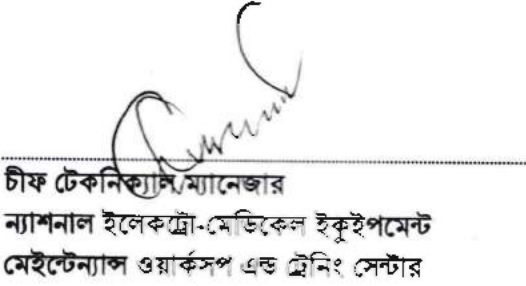 চীফ টেকনিক্যাল ম্যানেজার
ন্যাশনাল ইলেকট্রো-মেডিকেল ইকুইপমেন্ট
মেইন্টেন্যান্স ওয়ার্কসপ এন্ড ট্রেনিং সেন্টার